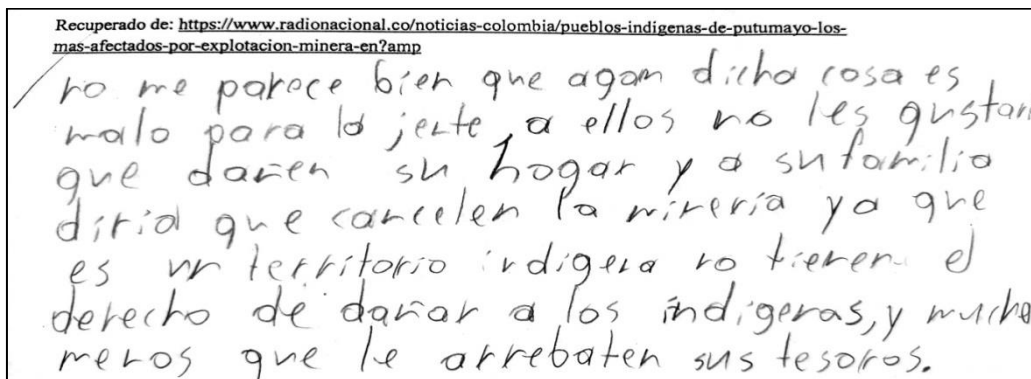 Recuperado de: https://www.radionacional.co/noticias-colombia/pueblos-indigenas-de-putumayo-los-
mas-afectados-por-explotacion-minera-en?amp
no me parece bien que agan dicha cosa es
malo para la jente, a ellos no les gustan
que dañen su hogar y a su familia
diria que cancelen la minería ya que
es un territorio indigena no tienen el
derecho de dañar a los indigenas, y mucho
menos que le arrebaten sus tesoros.